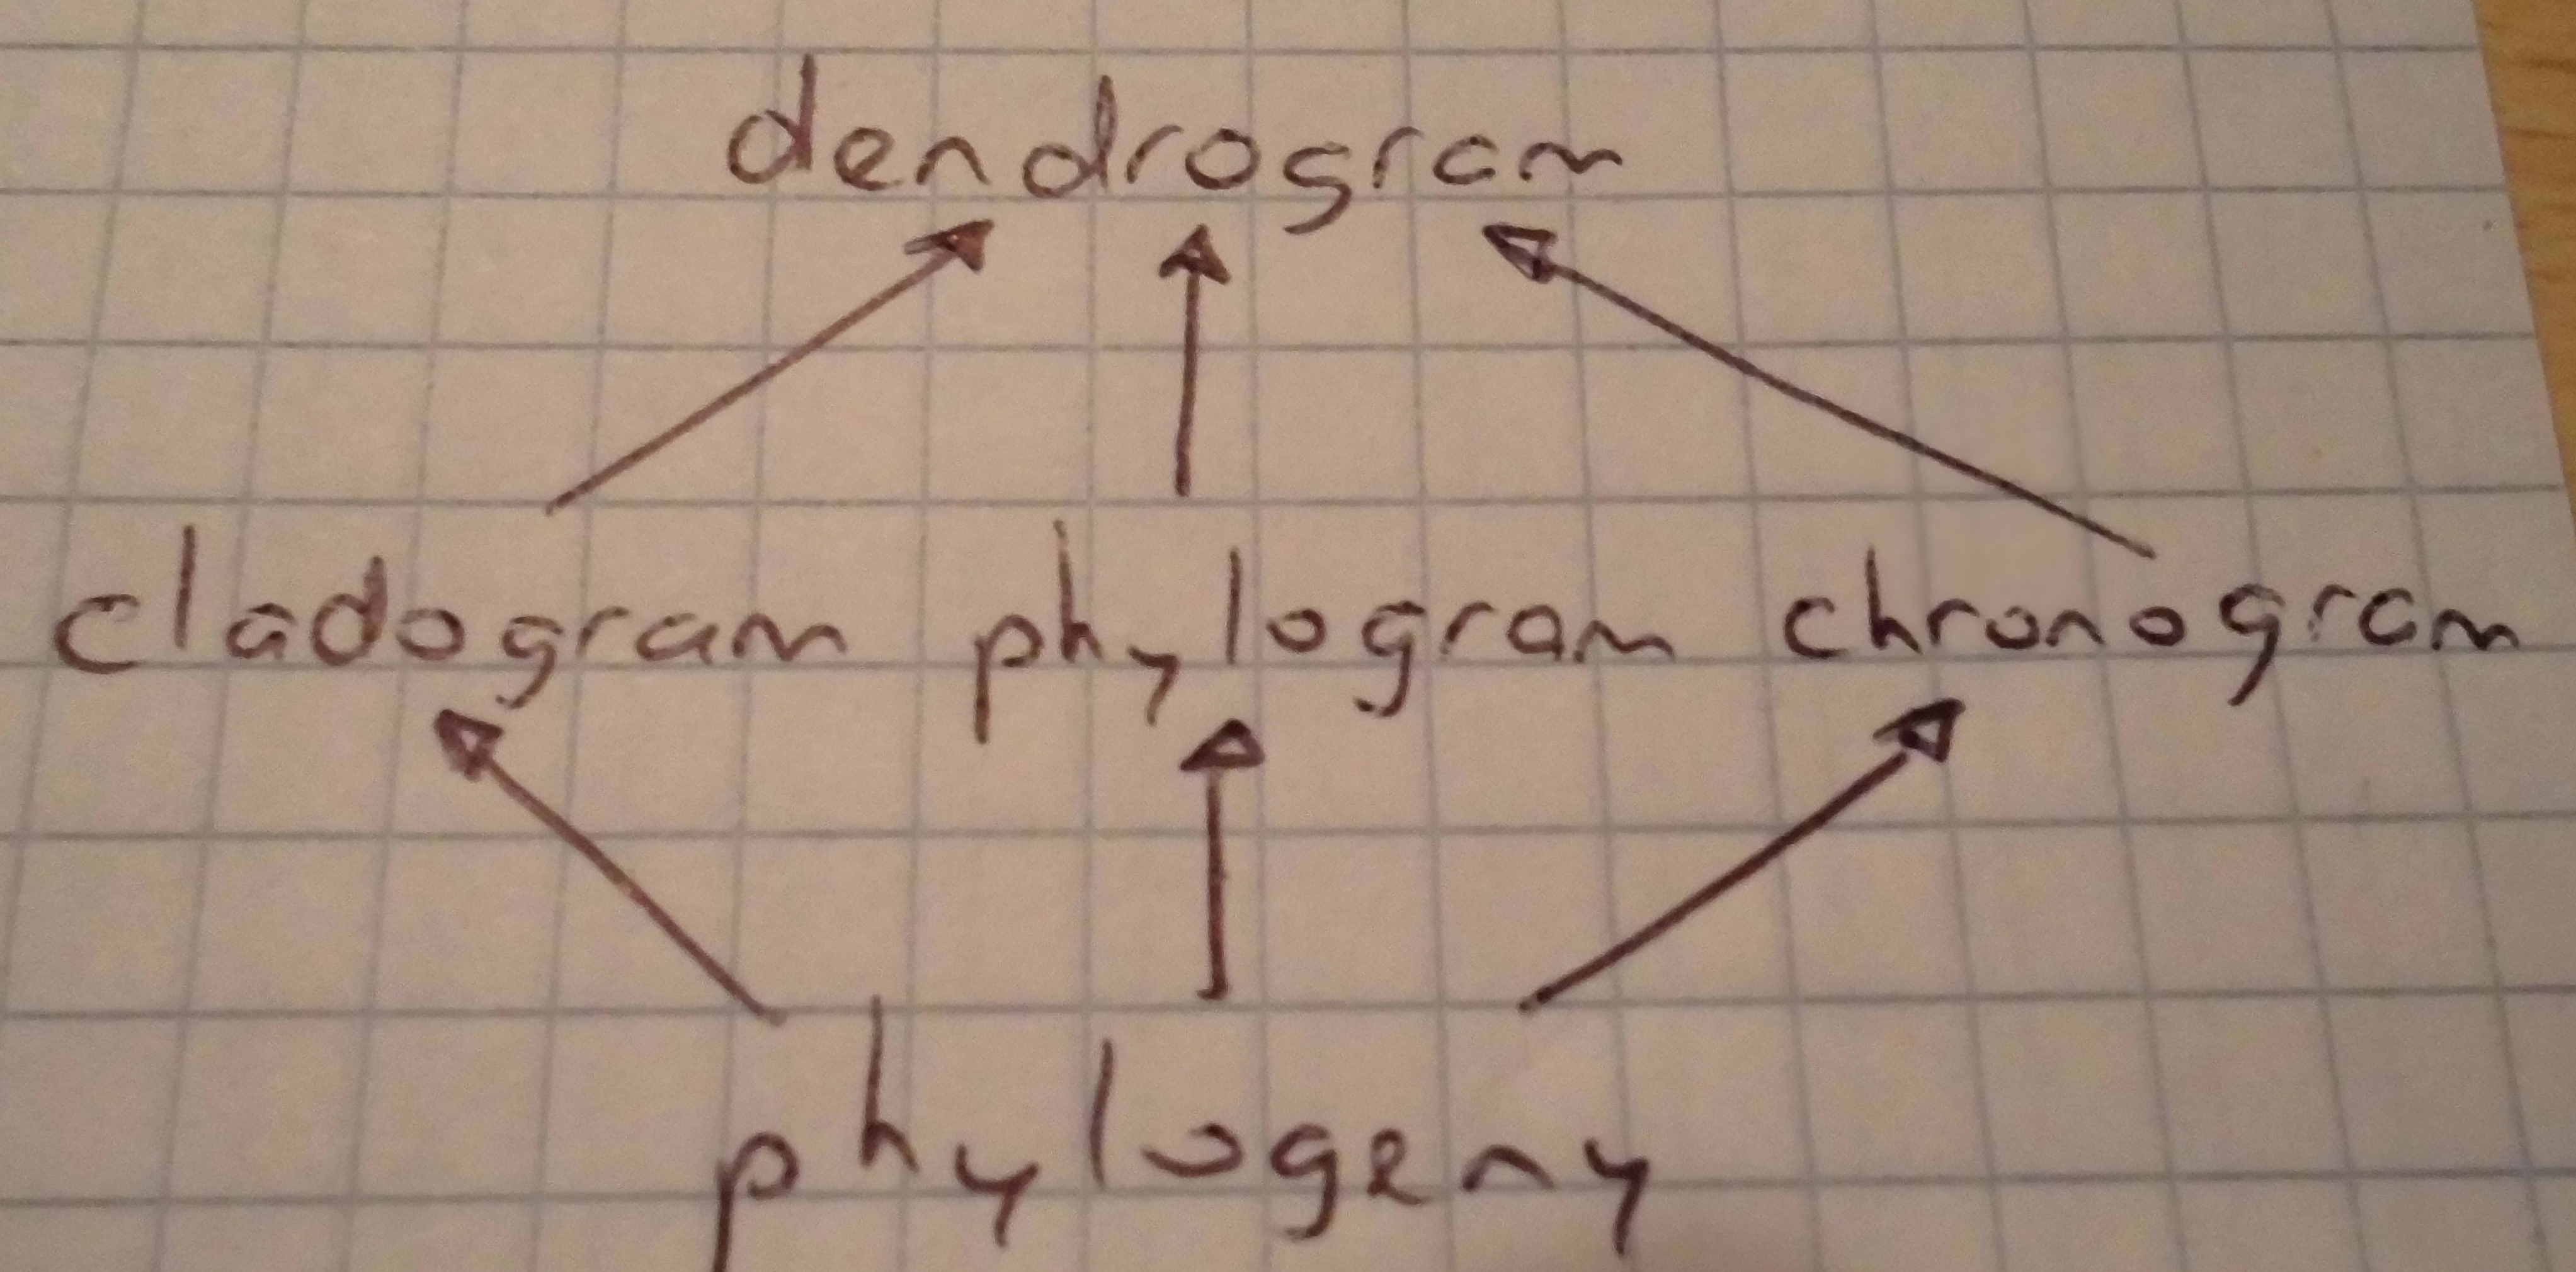 dendrogram
cladogram phylogram chronogram
phylogeny